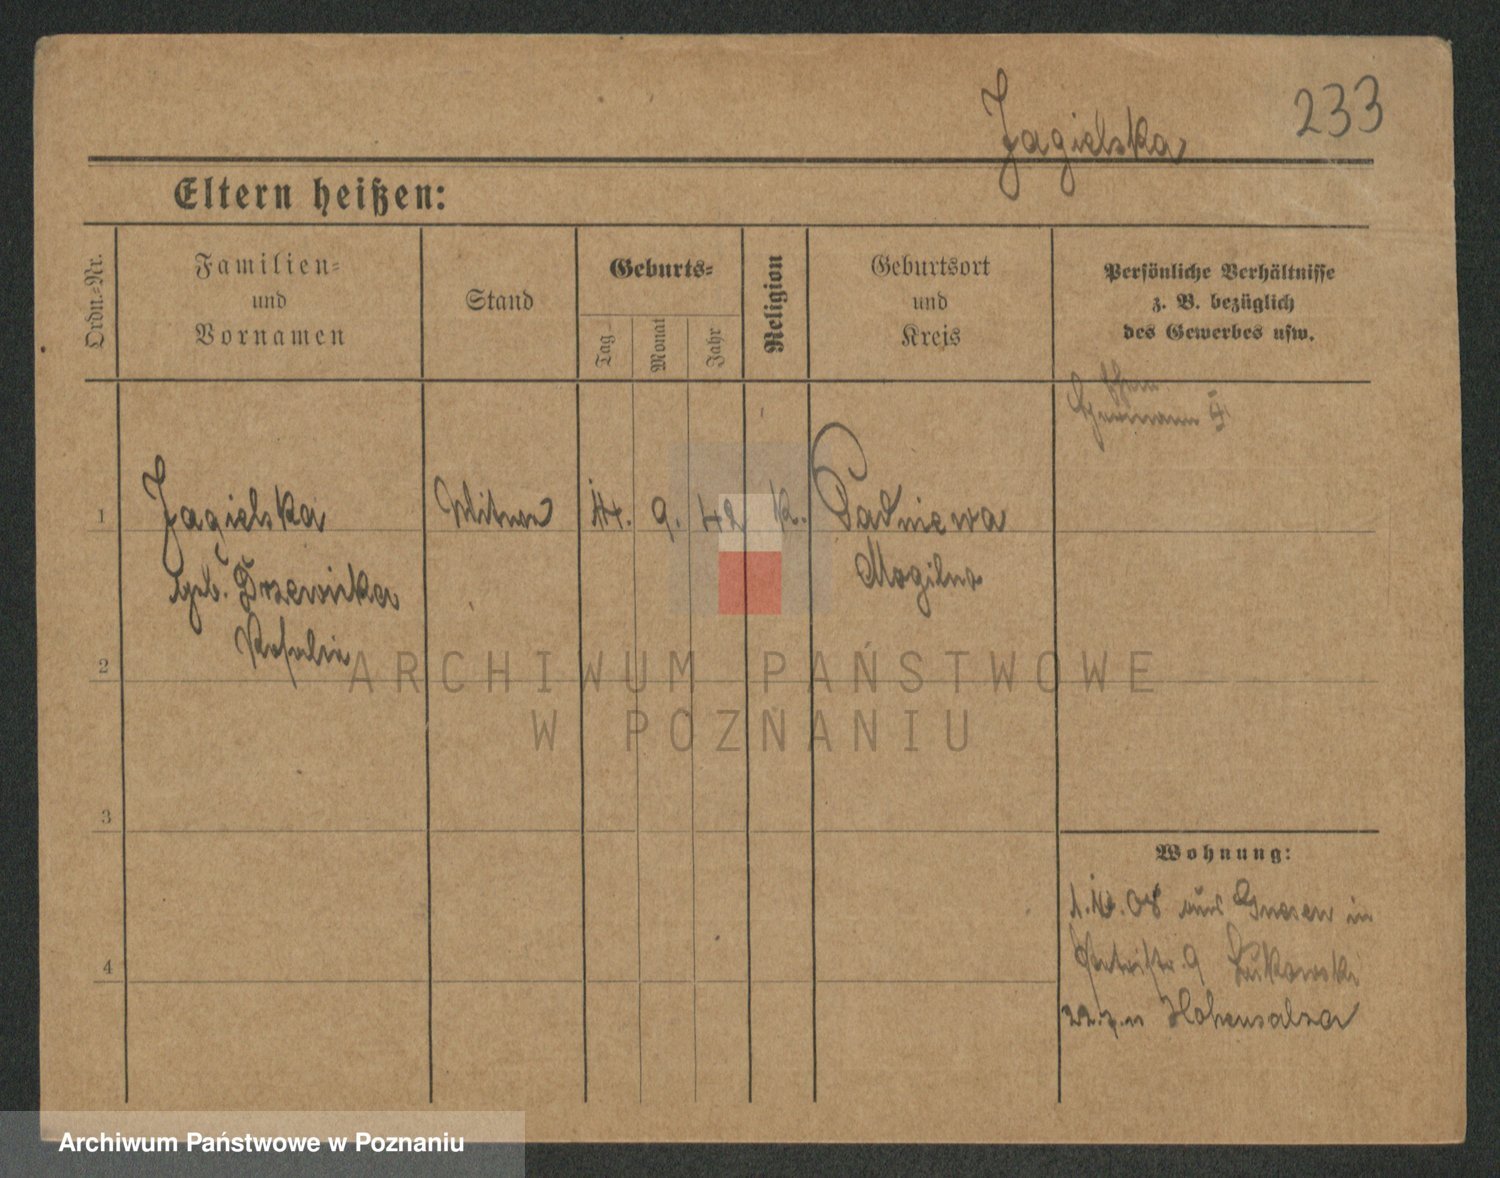 Jagielska
233
Eltern heißen:
Ordn.-Nr.
Familien-
und
Vornamen
Stand
Geburts-
Tag
Monat
Jahr
Religion
Geburtsort
und
Kreis
Persönliche Verhältnisse
z. B. bezüglich
des Gewerbes usw.
1
Jagielska
geb. Trzewicka
Rosalie
Witwe
14.
9.
42
K.
Padniewo
Mogilno
2
3
4
Wohnung:
1.10.08 aus Gnesen in
9 Lukowski
22.7.11 Hohensalza
ARCHIWUM PAŃSTWOWE
W POZNANIU
Archiwum Państwowe w Poznaniu